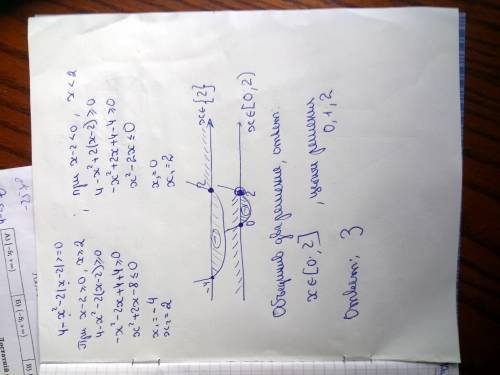 4-x²-2|x-2|>=0
При x-2≥0, x≥2
4-x²-2(x-2)≥0
-x²-2x+4+4≥0
x²+2x-8≤0
x₁=-4
x₂=2
; при x-2<0, x<2
4-x²+2(x-2)≥0
-x²+2x+4-4≥0
x²-2x≤0
x₁=0
x₂=2
-4 2 x∈{2}
0 2 x∈[0,2)
Объединив два решения, ответ:
x∈[0,2], целые решения
0,1,2
Ответ: 3